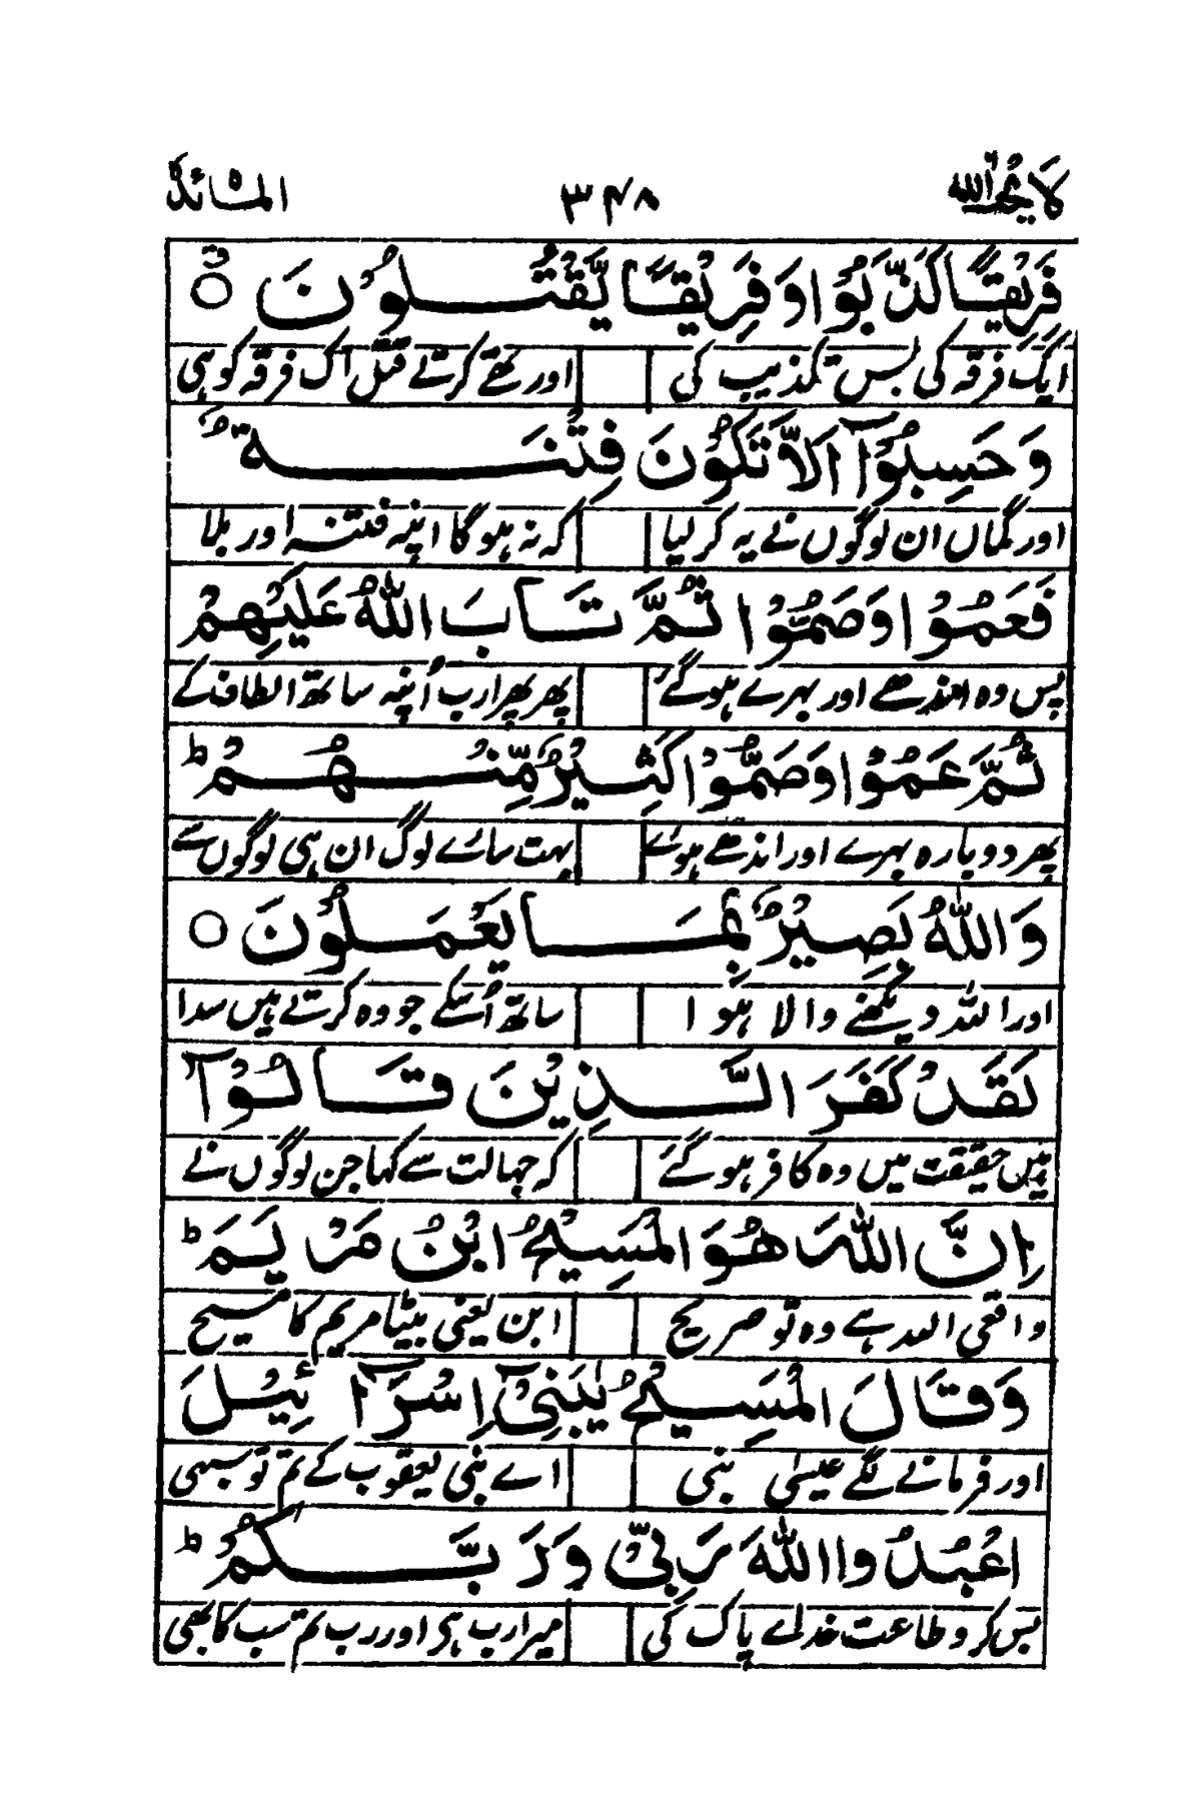 لا يحب الله ۳۴۸ المائدة
فَرِيْقًا كَذَّبُوْا وَفَرِيْقًا يَّقْتُلُوْنَ ۝
ایک فرقہ کی بس تکذیب کی اور تھے کرتے قتل اک فرقہ کو ہی
وَحَسِبُوْٓا اَلَّا تَكُوْنَ فِتْنَةٌ
اور گماں ان لوگوں نے یہ کر لیا کہ نہ ہو گا اپنہ فتنہ اور بلا
فَعَمُوْا وَصَمُّوْا ثُمَّ تَابَ اللّٰهُ عَلَيْهِمْ
پس وہ اندھے اور بہرے ہو گئے پھر پھرا رب اُپنہ ساتھ الطاف کے
ثُمَّ عَمُوْا وَصَمُّوْا كَثِيْرٌ مِّنْهُمْ ؕ
پھر دوبارہ بہرے اور اندھے ہوئے بہت سارے لوگ ان ہی لوگوں سے
وَاللّٰهُ بَصِيْرٌۢ بِمَا يَعْمَلُوْنَ ۝
اور اللہ دیکھنے والا ہوا ساتھ اُسکے جو وہ کرتے ہیں سدا
لَقَدْ كَفَرَ الَّذِيْنَ قَالُوْٓا
ہیں حقیقت میں وہ کافر ہو گئے کہ جہالت سے کہا جن لوگوں نے
اِنَّ اللّٰهَ هُوَ الْمَسِيْحُ ابْنُ مَرْيَمَ ؕ
واقعی اللہ ہے وہ تو صریح ابن یعنی بیٹا مریم کا مسیح
وَقَالَ الْمَسِيْحُ يٰبَنِيْٓ اِسْرَآئِيْلَ
اور فرمانے لگے عیسیٰ نبی اے بنی یعقوب کے تم تو سبھی
اعْبُدُوا اللّٰهَ رَبِّيْ وَرَبَّكُمْ ؕ
بس کرو طاعت خدائے پاک کی میرا رب ہی اور رب تم سب کا بھی